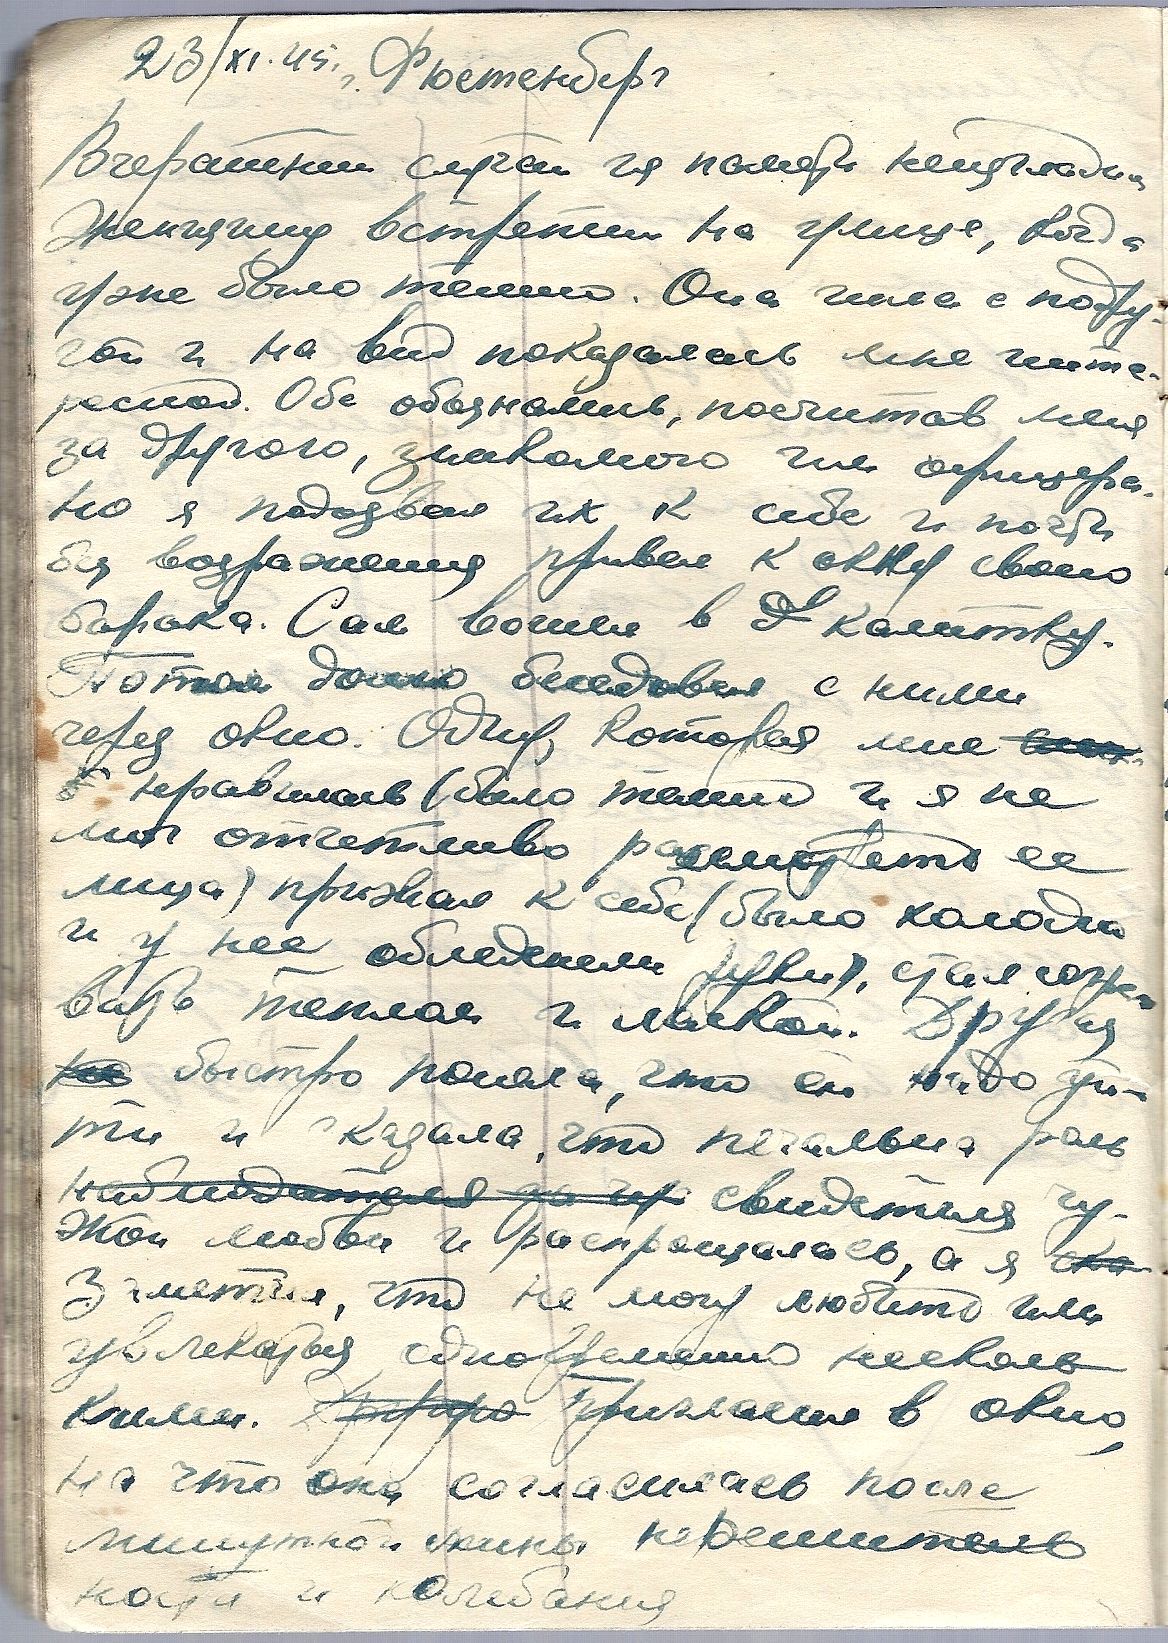 23/XI.45. Фюстенберг
Вчерашний случай из памяти неизгладим
Женщину встретил на улице, когда
уже было темно. Она шла с подру-
гой и на вид показалась мне инте-
ресной. Обе обознались, посчитав меня
за другого, знакомого им офицера.
Но я подозвал их к себе и почти
без возражения привел к окну своего
барака. Сам вошел в калитку.
Потом долго беседовал с ними
через окно. Одну, которая мне
нравилась (было темно и я не
мог отчетливо рассмотреть ее
лица) прижал к себе (было холодно
и у нее обледенели руки), стал согре-
вать теплом и лаской. Другая
быстро поняла, что ей надо уй-
ти и сказала, что печальна роль
наблюдателя за их свидетеля чу-
жой любви и распрощалась, а я
заметил, что не могу любить или
увлекаться одновременно несколь
кими. Пригласил в окно,
на что она согласилась после
минутной нерешитель
ности и колебания